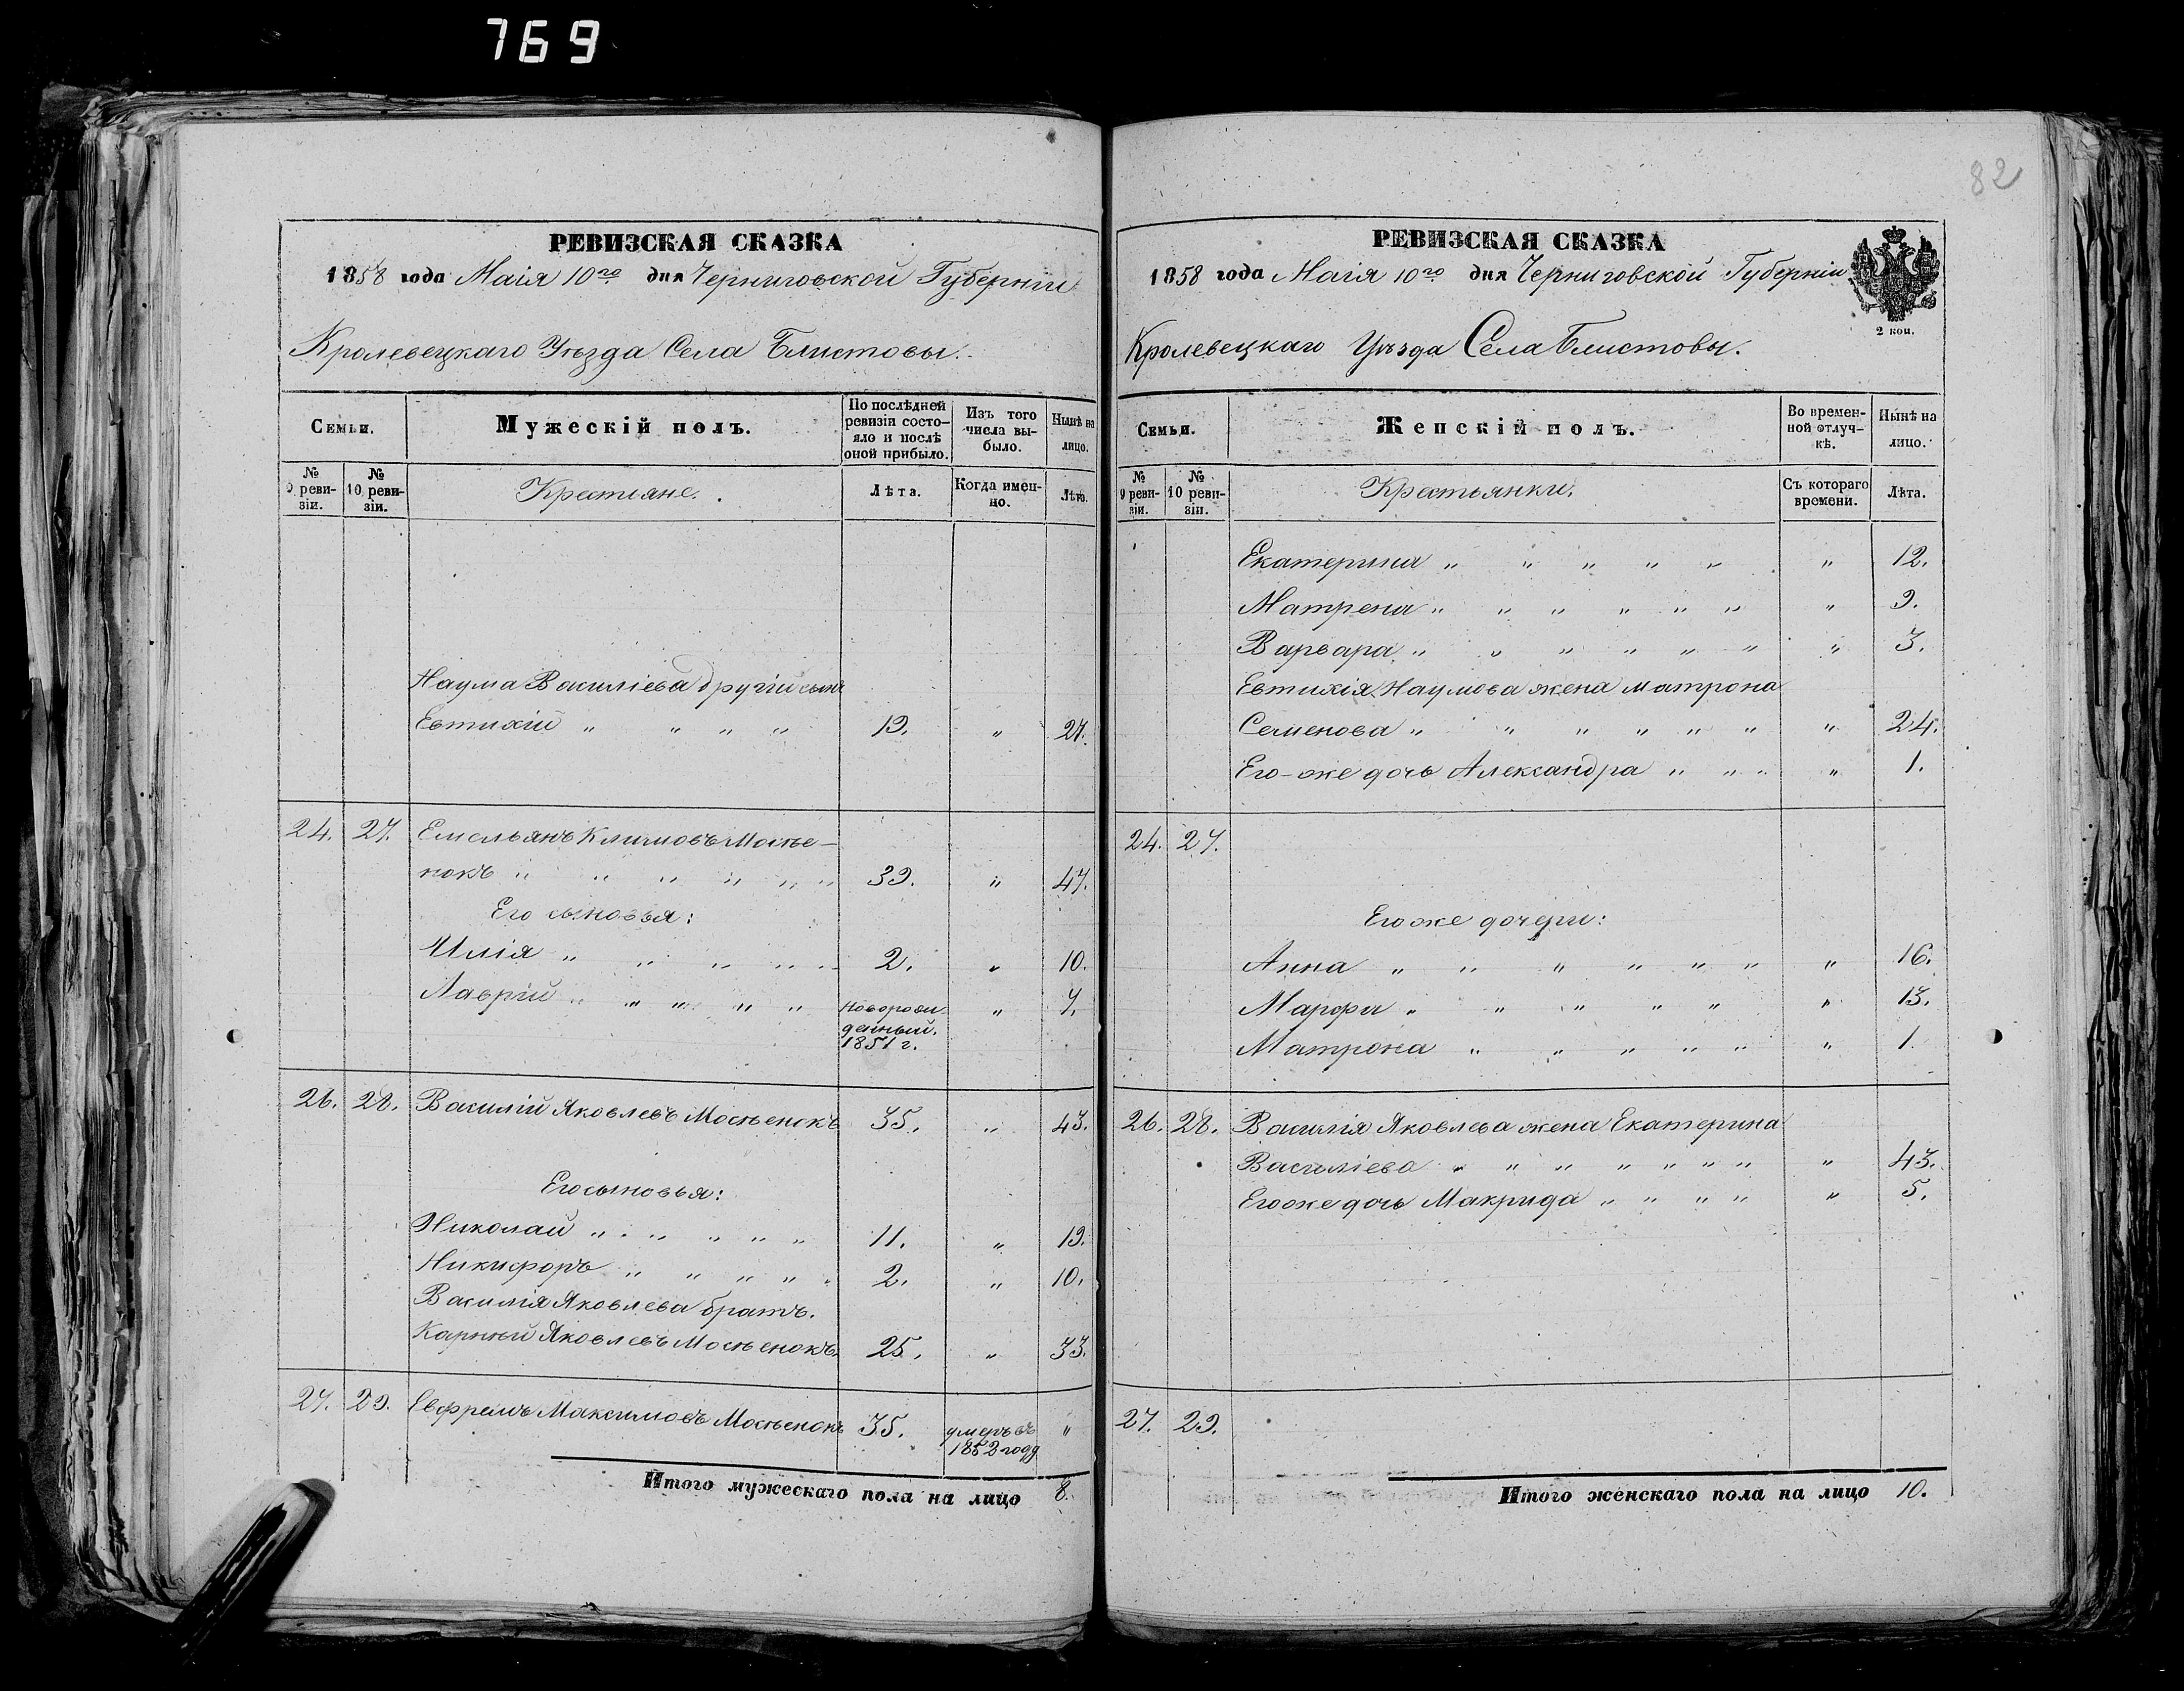 769
82
РЕВИЗСКАЯ СКАЗКА
1858 года Маія 10го дня Черниговской Губерніи
Кролевецкаго Уѣзда Села Блистовы.
Семьи.
Мужескій полъ.
По послѣдней ревизіи состояло и послѣ оной прибыло.
Изъ того числа выбыло.
Нынѣ на лицо.
№ 9 ревизіи.
№ 10 ревизіи.
Крестьяне.
Лѣта.
Когда именно.
Лѣта.
Наума Василіева другій сынъ
Евтихій " " " " 19. " 27.
24. 27. Емельянъ Климовъ Мосѣе-
нокъ " " " " " " 39. " 47.
Его сыновья:
Илія " " " " " 2. " 10.
Лаврій " " " " " Новорож- " 7.
денный.
1851 г.
26. 28. Василій Яковлевъ Мосѣенокъ 35. " 43.
Его сыновья:
Николай " " " " " " 11. " 19.
Никифоръ " " " " " 2. " 10.
Василія Яковлева братъ.
Карпѣй Яковлевъ Мосѣенокъ 25. " 33.
27. 29. Евфремъ Максимовъ Мосѣенокъ 35. умеръ въ "
1852 году
Итого мужескаго пола на лицо 8.
РЕВИЗСКАЯ СКАЗКА
1858 года Маія 10го дня Черниговской Губерніи
2 коп.
Кролевецкаго Уѣзда Села Блистовы.
Семьи.
Женскій полъ.
Во временной отлучкѣ.
Нынѣ на лицо.
№ 9 ревизіи.
№ 10 ревизіи.
Крестьянки.
Съ котораго времени.
Лѣта.
Екатерина " " " " " " 12.
Матрена " " " " " " " 9.
Варвара " " " " " " " 3.
Евтихія Наумова жена Матрона
Семенова " " " " " " " 24.
Его-же дочь Александра " " " " 1.
24. 27.
Его же дочери:
Анна " " " " " " " 16.
Марфа " " " " " " 13.
Матрона " " " " " " 1.
26. 28. Василія Яковлева жена Екатерина
Василіева " " " " " " " " 43.
Его же дочь Макрида " " " " " 5.
27. 29.
Итого женскаго пола на лицо 10.